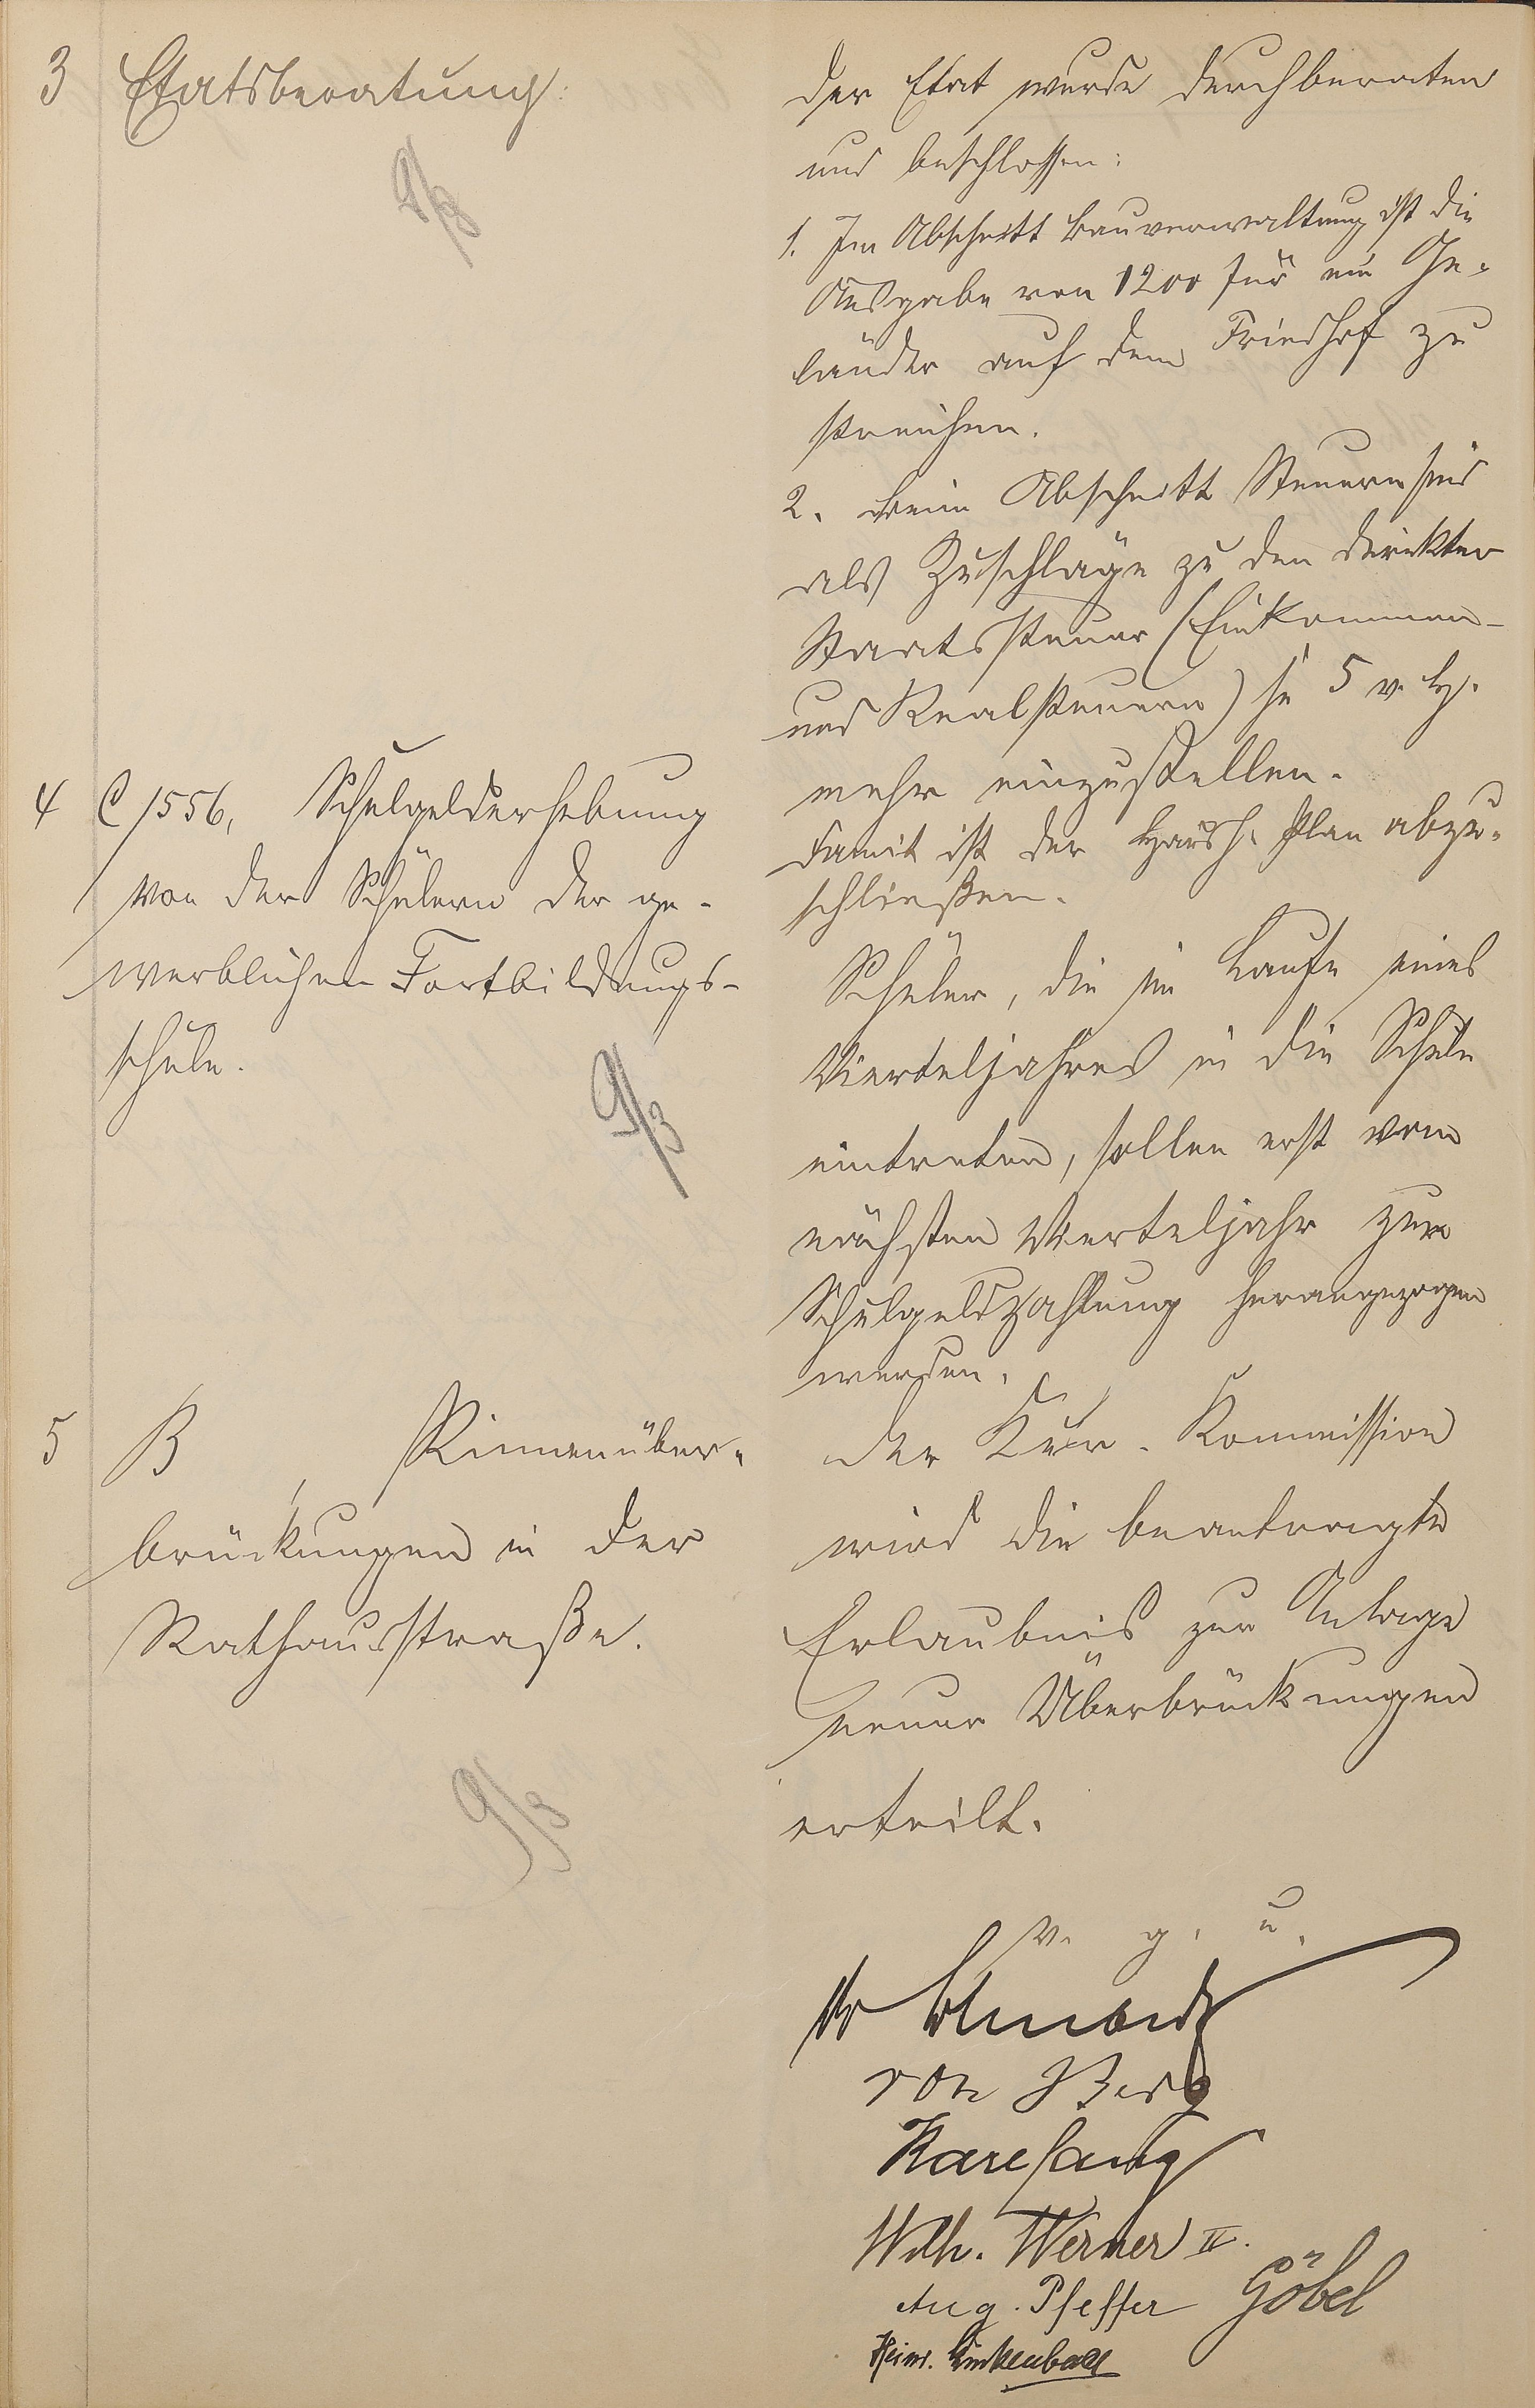 3 Etatsberatung.
9/3
Der Etat wurde durchberaten
und beschlossen:
1. Im Abschnitt Bauverwaltung ist die
Ausgabe von 1200 für ein Ge-
länder auf dem Friedhof zu
streichen.
2. Beim Abschnitt Steuern sind
als Zuschläge zu den direkten
Staatssteuer (Einkommen-
und Realsteuern) je 5 v. H.
mehr einzustellen.
Damit ist der Haush. Plan abzu-
schließen.
4 C 1556, Schulgelderhebung
von den Schülern der ge-
werblichen Fortbildungs-
schule.
9/3
Schüler, die im Laufe eines
Vierteljahres in die Schule
eintreten, sollen erst vom
nächsten Vierteljahr zur
Schulgeldzahlung herangezogen
werden.
5 B , Rinnenüber-
brückungen in der
Rathausstraße.
9/3
Der Kur-Kommission
wird die beantragte
Erlaubnis zur Anlage
neuer Überbrückungen
erteilt.
v. g. u.
von Berg
Wilh. Werner II.
Aug. Pfeffer Göbel
Heinr.